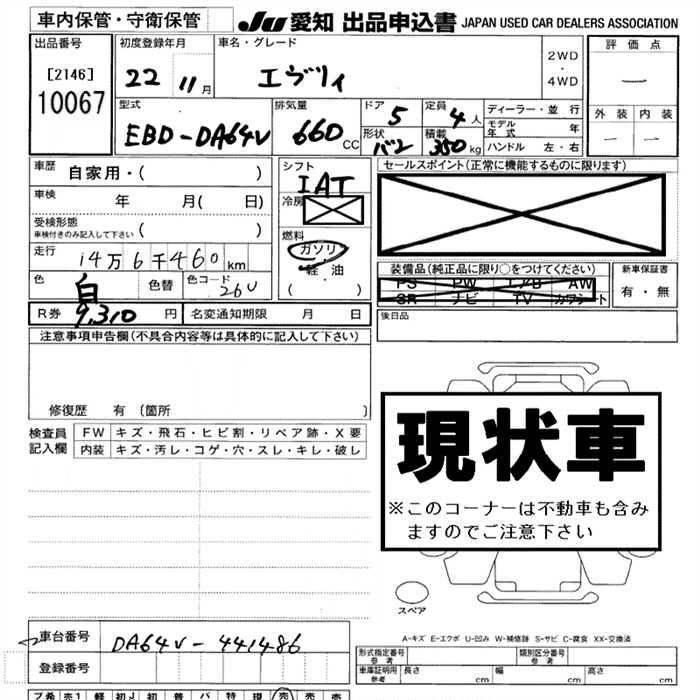 車内保管・守衛保管
JU 愛知 出品申込書 JAPAN USED CAR DEALERS ASSOCIATION
出品番号
[2146]
10067
初度登録年月
22 11月
車名・グレード
エブリィ
2WD
・
4WD
評価点
—
外装 内装
— —
型式
EBD-DA64V
排気量
660 CC
ドア 5
定員 4人
形状 バン
積載 350kg
ディーラー・並行
モデル年式 年
ハンドル 左・右
車歴 自家用・( )
車検 年 月( 日)
受検形態
車検付きのみ記入して下さい ( )
走行 14万6千460km
色 白 色替 色コード 26U
R券 9,310円 名変通知期限 月 日
シフト IAT
冷房
燃料
ガソリン
軽・油
( )
セールスポイント(正常に機能するものに限ります)
装備品(純正品に限り○をつけてください)
PS PW エアB AW
SR ナビ TV カワシート
新車保証書
有・無
後日品
注意事項申告欄(不具合内容等は具体的に記入して下さい)
修復歴 有(箇所 )
検査員記入欄
FW キズ・飛石・ヒビ割・リペア跡・X要
内装 キズ・汚レ・コゲ・穴・スレ・キレ・破レ
現状車
※このコーナーは不動車も含み
ますのでご注意下さい
スペア
A-キズ E-エクボ U-凹み W-補修跡 S-サビ C-腐食 XX-交換済
車台番号 DA64V-441486
登録番号
形式指定番号 参考
類別区分番号 参考
車庫証明用 参考 長さ cm 幅 cm 高さ cm